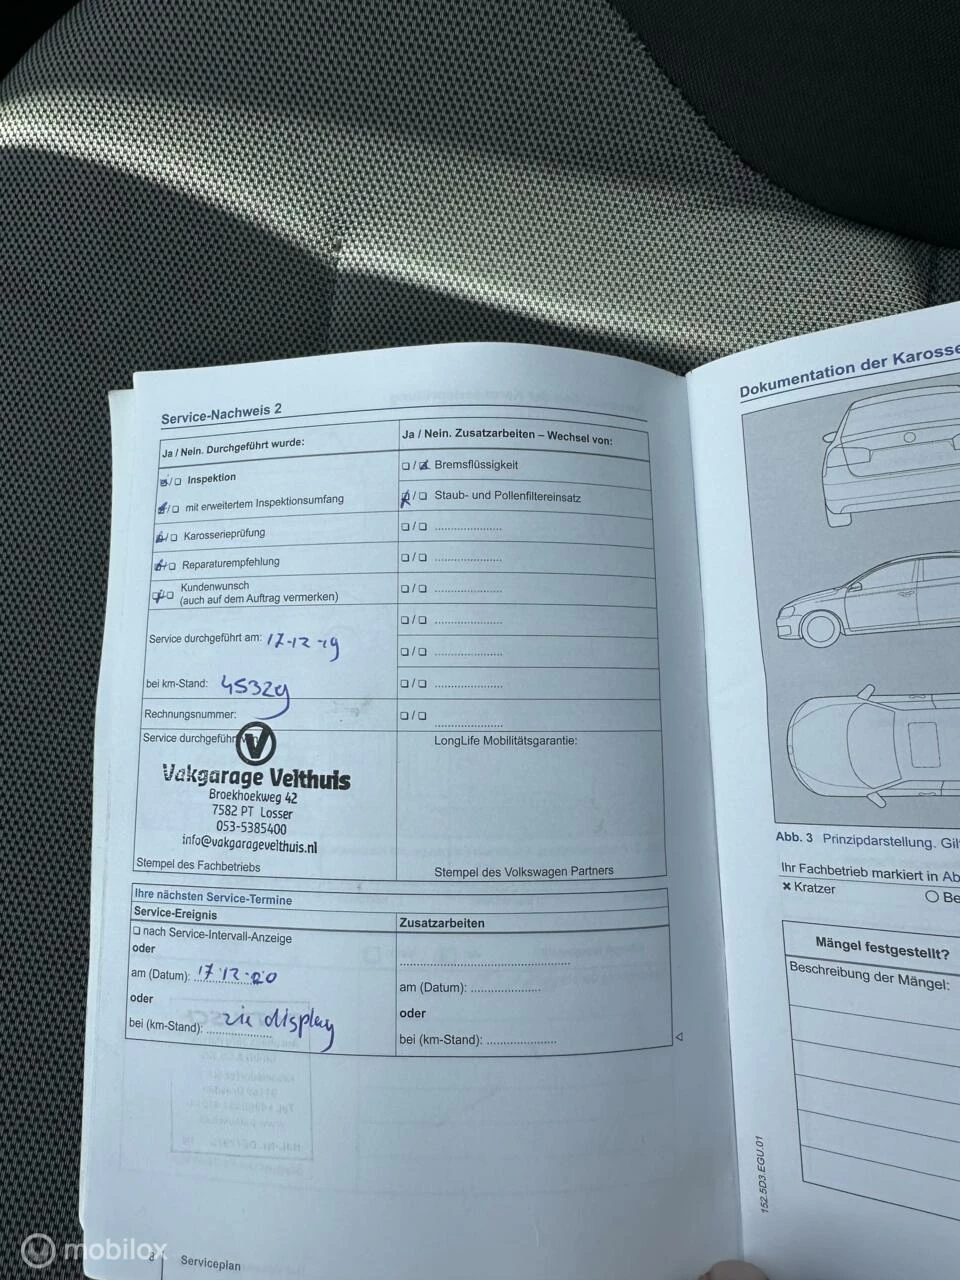 Service-Nachweis 2
Ja / Nein. Durchgeführt wurde:
Inspektion
mit erweitertem Inspektionsumfang
Karosserieprüfung
Reparaturempfehlung
Kundenwunsch
(auch auf dem Auftrag vermerken)
Service durchgeführt am: 17-12-19
bei km-Stand: 45329
Rechnungsnummer:
Service durchgeführt
V
Vakgarage Velthuis
Broekhoekweg 42
7582 PT Losser
053-5385400
info@vakgaragevelthuis.nl
Stempel des Fachbetriebs
Ja / Nein. Zusatzarbeiten – Wechsel von:
Bremsflüssigkeit
Staub- und Pollenfiltereinsatz
LongLife Mobilitätsgarantie:
Stempel des Volkswagen Partners
Ihre nächsten Service-Termine
Service-Ereignis
nach Service-Intervall-Anzeige
oder
am (Datum): 17-12-20
oder
bei (km-Stand): zie display
Zusatzarbeiten
am (Datum):
oder
bei (km-Stand):
8 Serviceplan
Dokumentation der Karosse
Abb. 3 Prinzipdarstellung. Gil
Ihr Fachbetrieb markiert in Ab
× Kratzer
Be
Mängel festgestellt?
Beschreibung der Mängel:
152.5D3.EGU.01
mobilox